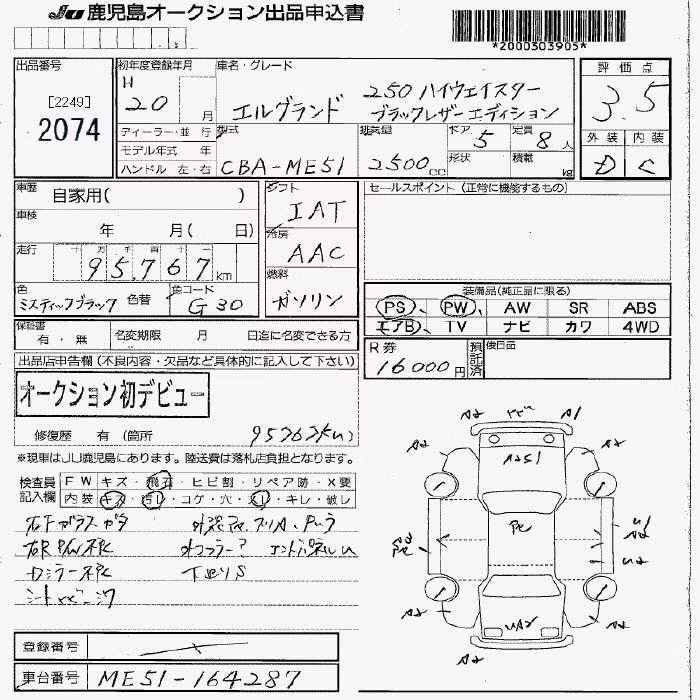 JU 鹿児島オークション出品申込書
*2000303905*
出品番号
[2249]
2074
初年度登録年月
H
20 月
車名・グレード
エルグランド 250 ハイウェイスター
ブラックレザーエディション
評価点
3.5
外装 内装
D C
ディーラー・並行
モデル年式 年
ハンドル 左・右
型式
CBA-ME51
排気量
2500 cc
ドア 5
形状
定員 8 人
積載 kg
車歴 自家用( )
車検 年 月( 日)
走行 十 万 千 百 十 一
95,767 km
色
ミスティックブラック 色替
色コード
G30
シフト
IAT
冷房
AAC
燃料
ガソリン
セールスポイント (正常に機能するもの)
装備品(純正品に限る)
PS、 PW、 AW SR ABS
エアB、 TV ナビ カワ 4WD
保証書
有・無
名変期限 月 日迄に名変できる方
R券
16000円
預託済
後日品
出品店申告欄 (不良内容・欠品など具体的に記入して下さい)
オークション初デビュー
修復歴 有 (箇所
※現車はJU鹿児島にあります。陸送費は落札店負担となります。
検査員
記入欄
FW キズ・飛石・ヒビ割・リペア跡・X要
内装 キズ・汚レ・コゲ・穴・スレ・キレ・破レ
A2 A1
A2 A2
A2S1
A2 A2
A2 A2
登録番号
車台番号 ME51-164287